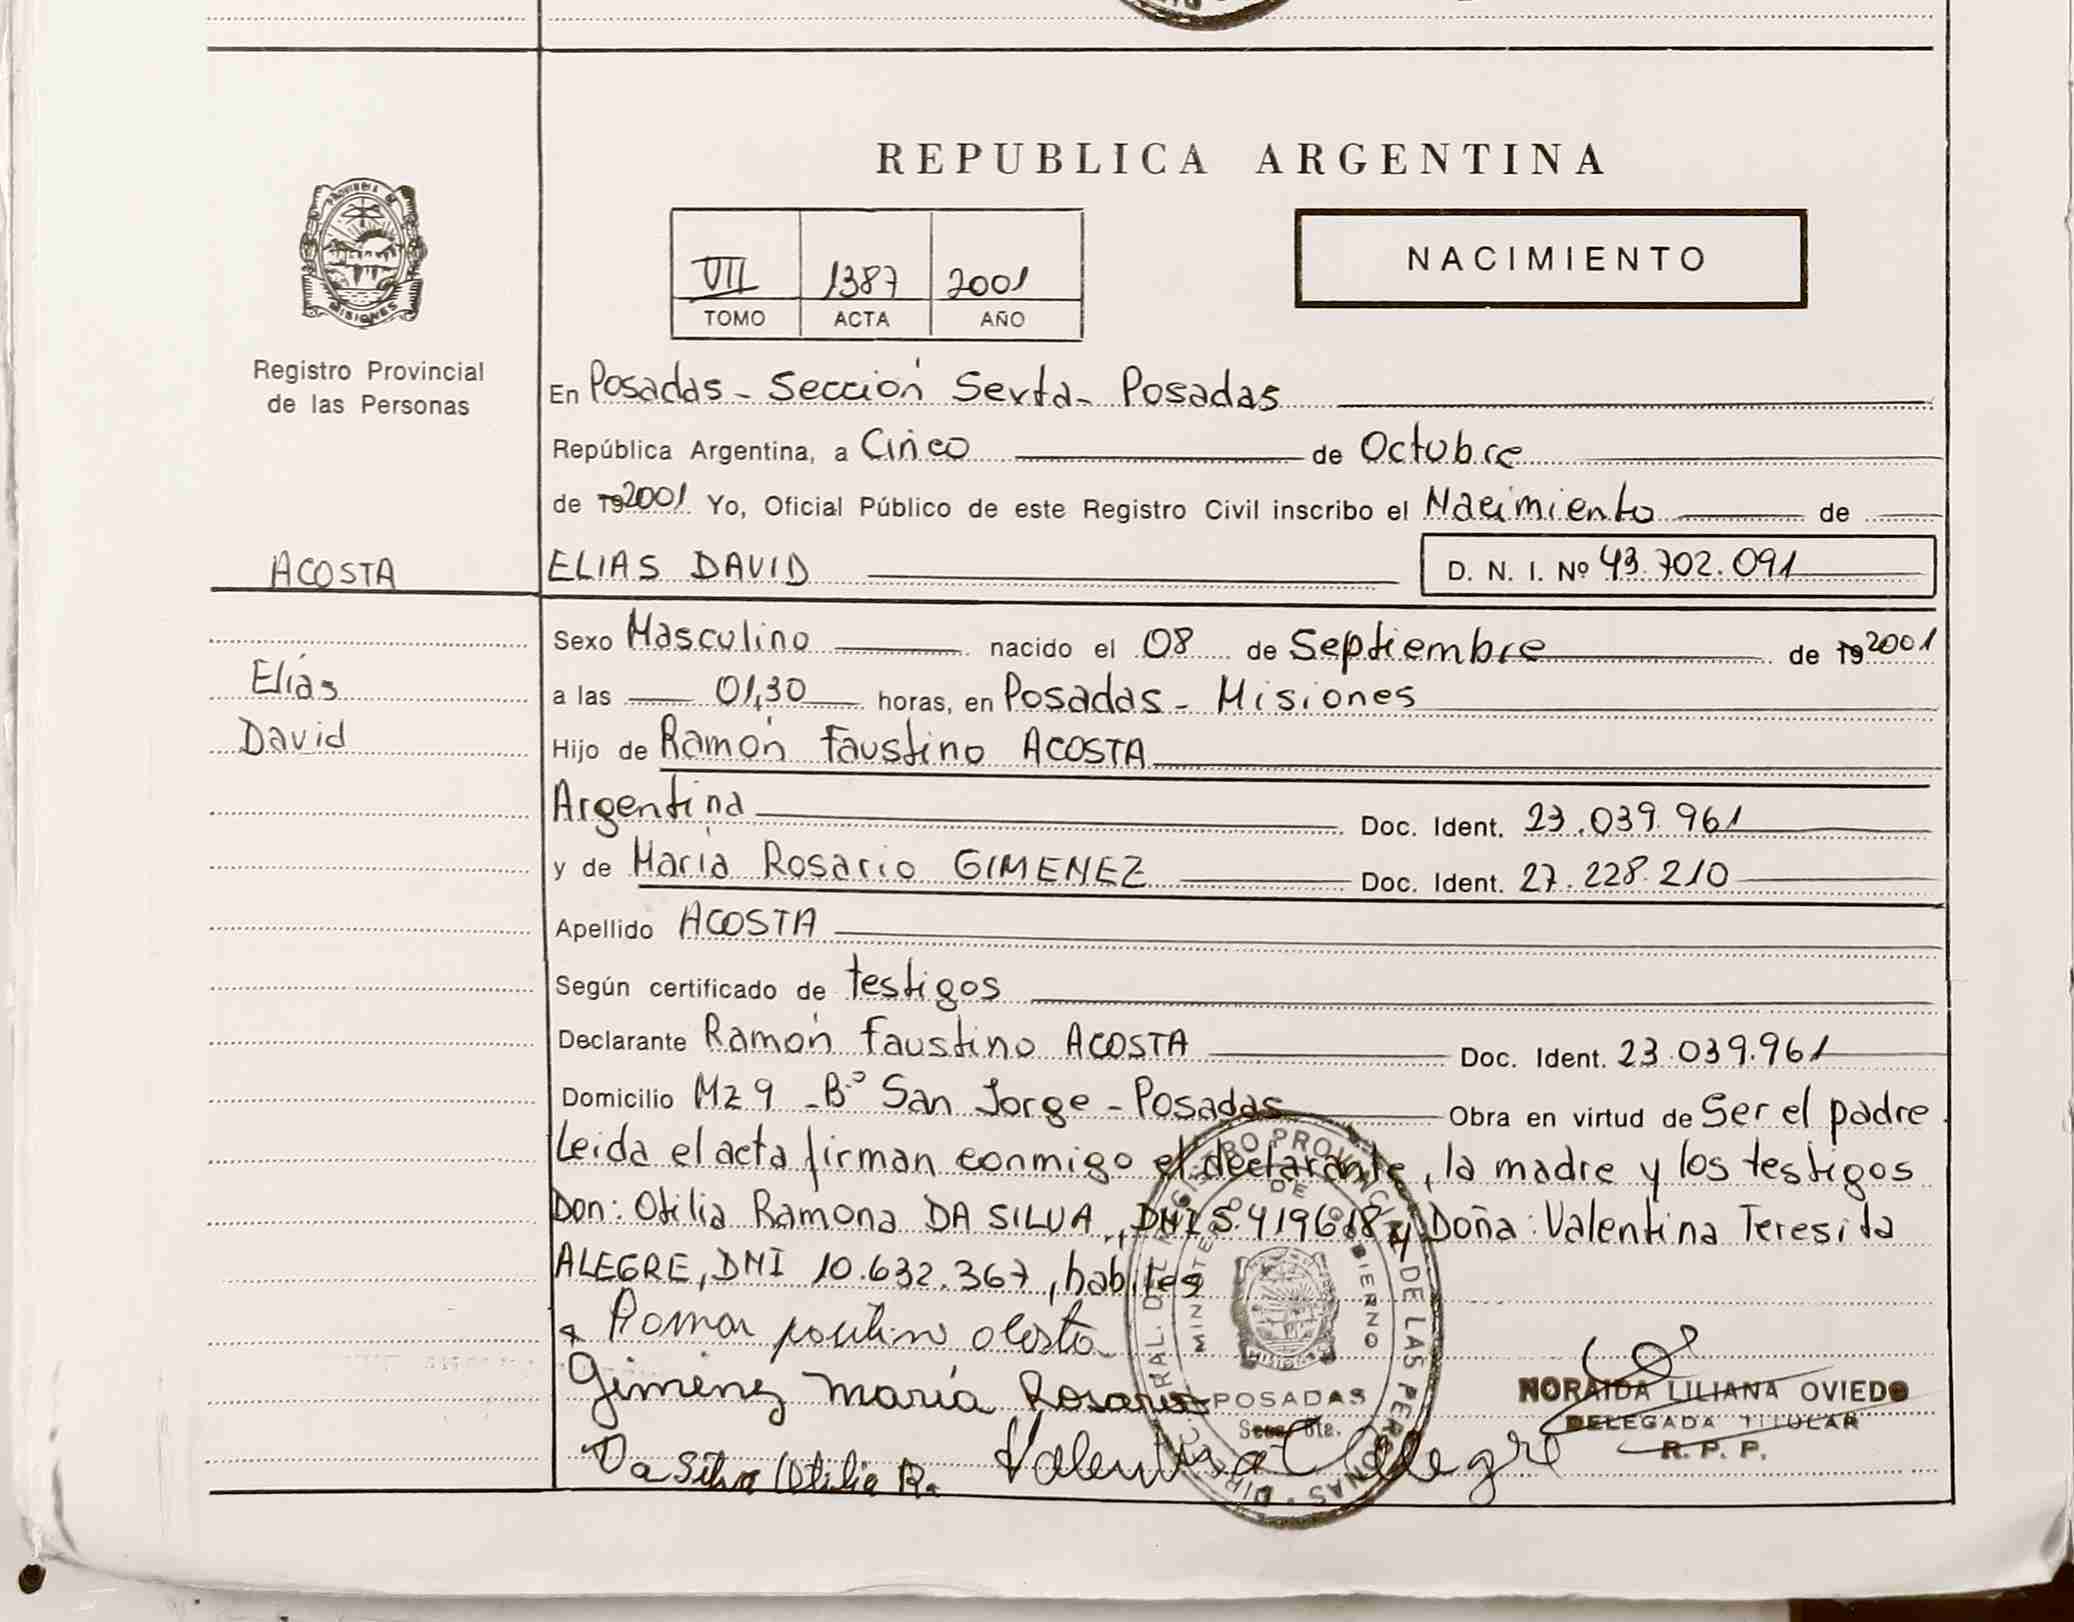 REPUBLICA ARGENTINA
NACIMIENTO
VII 1387 2001
TOMO ACTA AÑO
PROVINCIA DE
MISIONES
Registro Provincial
de las Personas
En Posadas - Sección Sexta - Posadas
República Argentina, a Cinco de Octubre
de 19 2001 Yo, Oficial Público de este Registro Civil inscribo el Nacimiento de
ACOSTA ELIAS DAVID D. N. I. Nº 43.702.091
Sexo Masculino nacido el 08 de Septiembre de 19 2001
Elías
a las 01,30 horas, en Posadas - Misiones
David
Hijo de Ramón Faustino ACOSTA
Argentina Doc. Ident. 23.039.961
y de María Rosario GIMENEZ Doc. Ident. 27.228.210
Apellido ACOSTA
Según certificado de testigos
Declarante Ramón Faustino ACOSTA Doc. Ident. 23.039.961
Domicilio Mz 9 - Bº San Jorge - Posadas Obra en virtud de Ser el padre
Leida el acta firman conmigo el declarante, la madre y los testigos
Don: Otilia Ramona DA SILVA, DNI 5.419618 y Doña: Valentina Teresita
ALEGRE, DNI 10.632.367, habiles
Gimenez María Rosario
Da Silva Otilia R. Valentina Alegre
DIREC. GRAL. DEL REGISTRO PROVINCIAL DE LAS PERSONAS
MINISTERIO DE GOBIERNO
MISIONES
POSADAS
Secc. 6ta.
NORAIDA LILIANA OVIEDO
DELEGADA TITULAR
R. P. P.